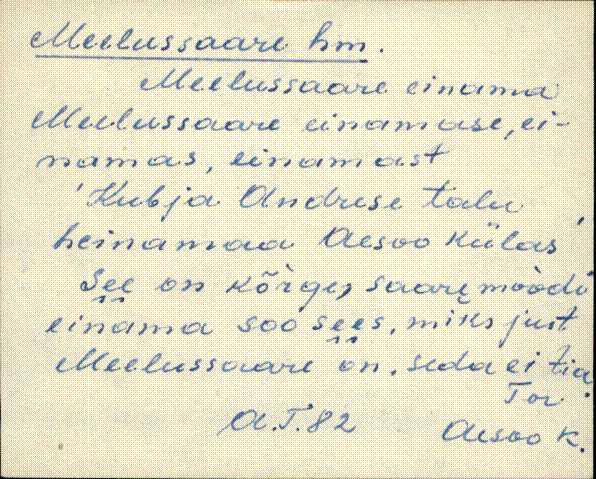 Meelussaare hm.
Meelussaare einama
Meelussaare einamase, ei-
namas, einamast
'Kubja Andrese talu
heinamaa Aesoo külas'
See on kõrge, saare moodi
einama soo sees, miks just
Meelussaare on, seda ei tia.
Tor
A.T.82 Aesoo k.